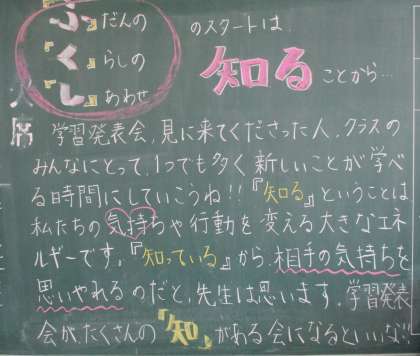 『ふ』だんの
『く』らしの
『し』あわせ
のスタートは
知ることから…
学習発表会、見に来てくださった人、クラスの
みんなにとって、1つでも多く新しいことが学べ
る時間にしていこうね!!『知る』ということは
私たちの気持ちや行動を変える大きなエネ
ルギーです。『知っている』から、相手の気持ちを
思いやれるのだと、先生は思います。学習発表
会が、たくさんの『知』がある会になるといいな!!